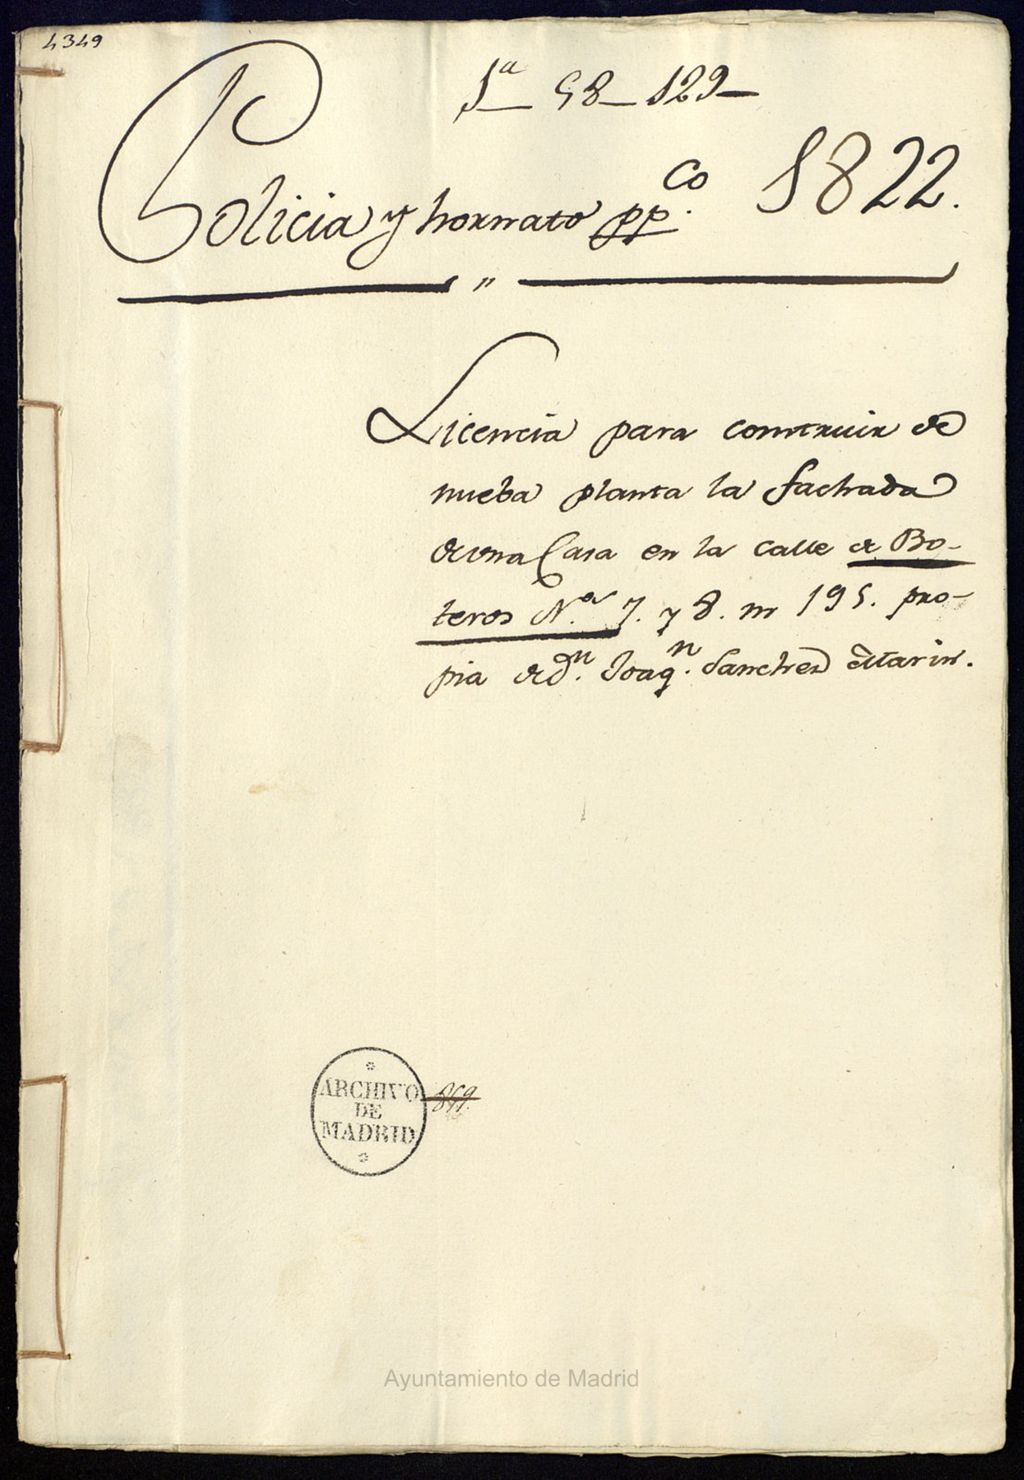 4349
1ª 58 129
Policia y hornato pp.co 1822.
Licencia para construir de
nueba planta la fachada
de una Casa en la calle de Bo-
teros N.os 7. y 8. m 195. pro-
pia de Dn. Joaqn. Sanchez Marin.
ARCHIVO
DE
MADRID
Ayuntamiento de Madrid